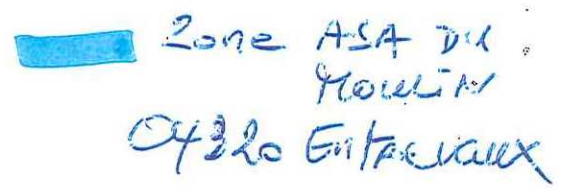 Zone ASA DU
MOULIN
04320 Entrevaux